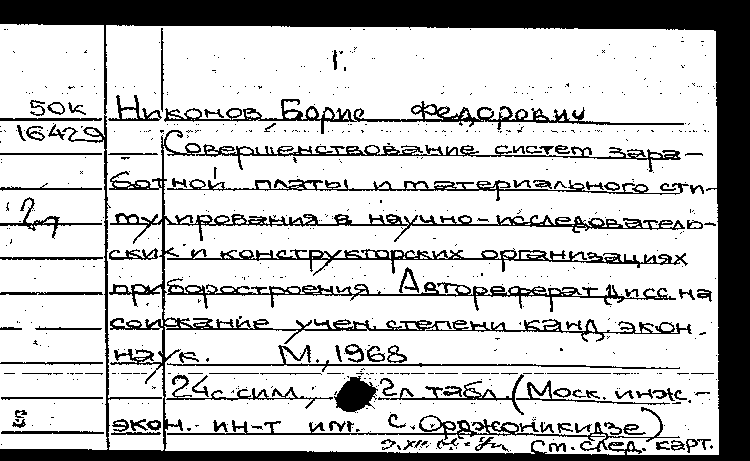 Г.
50к Никонов Борис Федорович
16429
Совершенствование систем зара-
ботной платы и материального сти-
мулирования в научно-исследователь-
ских и конструкторских организациях
приборостроения. Автореферат дисс. на
соискание учен. степени канд. экон.
наук. М., 1968.
24 с. сим.; 2л табл. (Моск. инж.-
экон. ин-т им. С. Орджоникидзе)
См. след. карт.